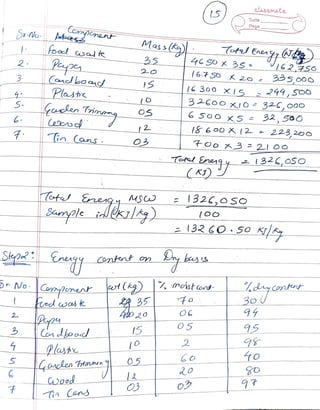 15
classmate
Date
Page
Sr.No. Component Mass (Kg) Total Energy (KJ/kg)
1. Food waste 35 4650 x 35 = 162,750
2. Paper 20 16750 x 20 = 335,000
3 Cardboard 15 16300 x 15 = 244,500
4. Plastic 10 32600 x 10 = 326,000
5. Garden Trimming 05 6500 x 5 = 32,500
6. Wood 12 18600 x 12 = 223,200
7. Tin Cans. 03 700 x 3 = 2100
Total Energy = 1326,050
(KJ)
Total Energy MSW = 1326,050
Sample in (KJ/kg) 100
= 13260.50 KJ/kg
Step2: Energy content on Dry basis
Sr No. Component wt (kg) % moisture % dry content
1 Food waste 35 70 30
2 Paper 20 06 94
3 Cardboard 15 05 95
4 Plastic 10 2 98
5 Garden Trimming 05 60 40
6 Wood 12 20 80
7 Tin Cans 03 03 97